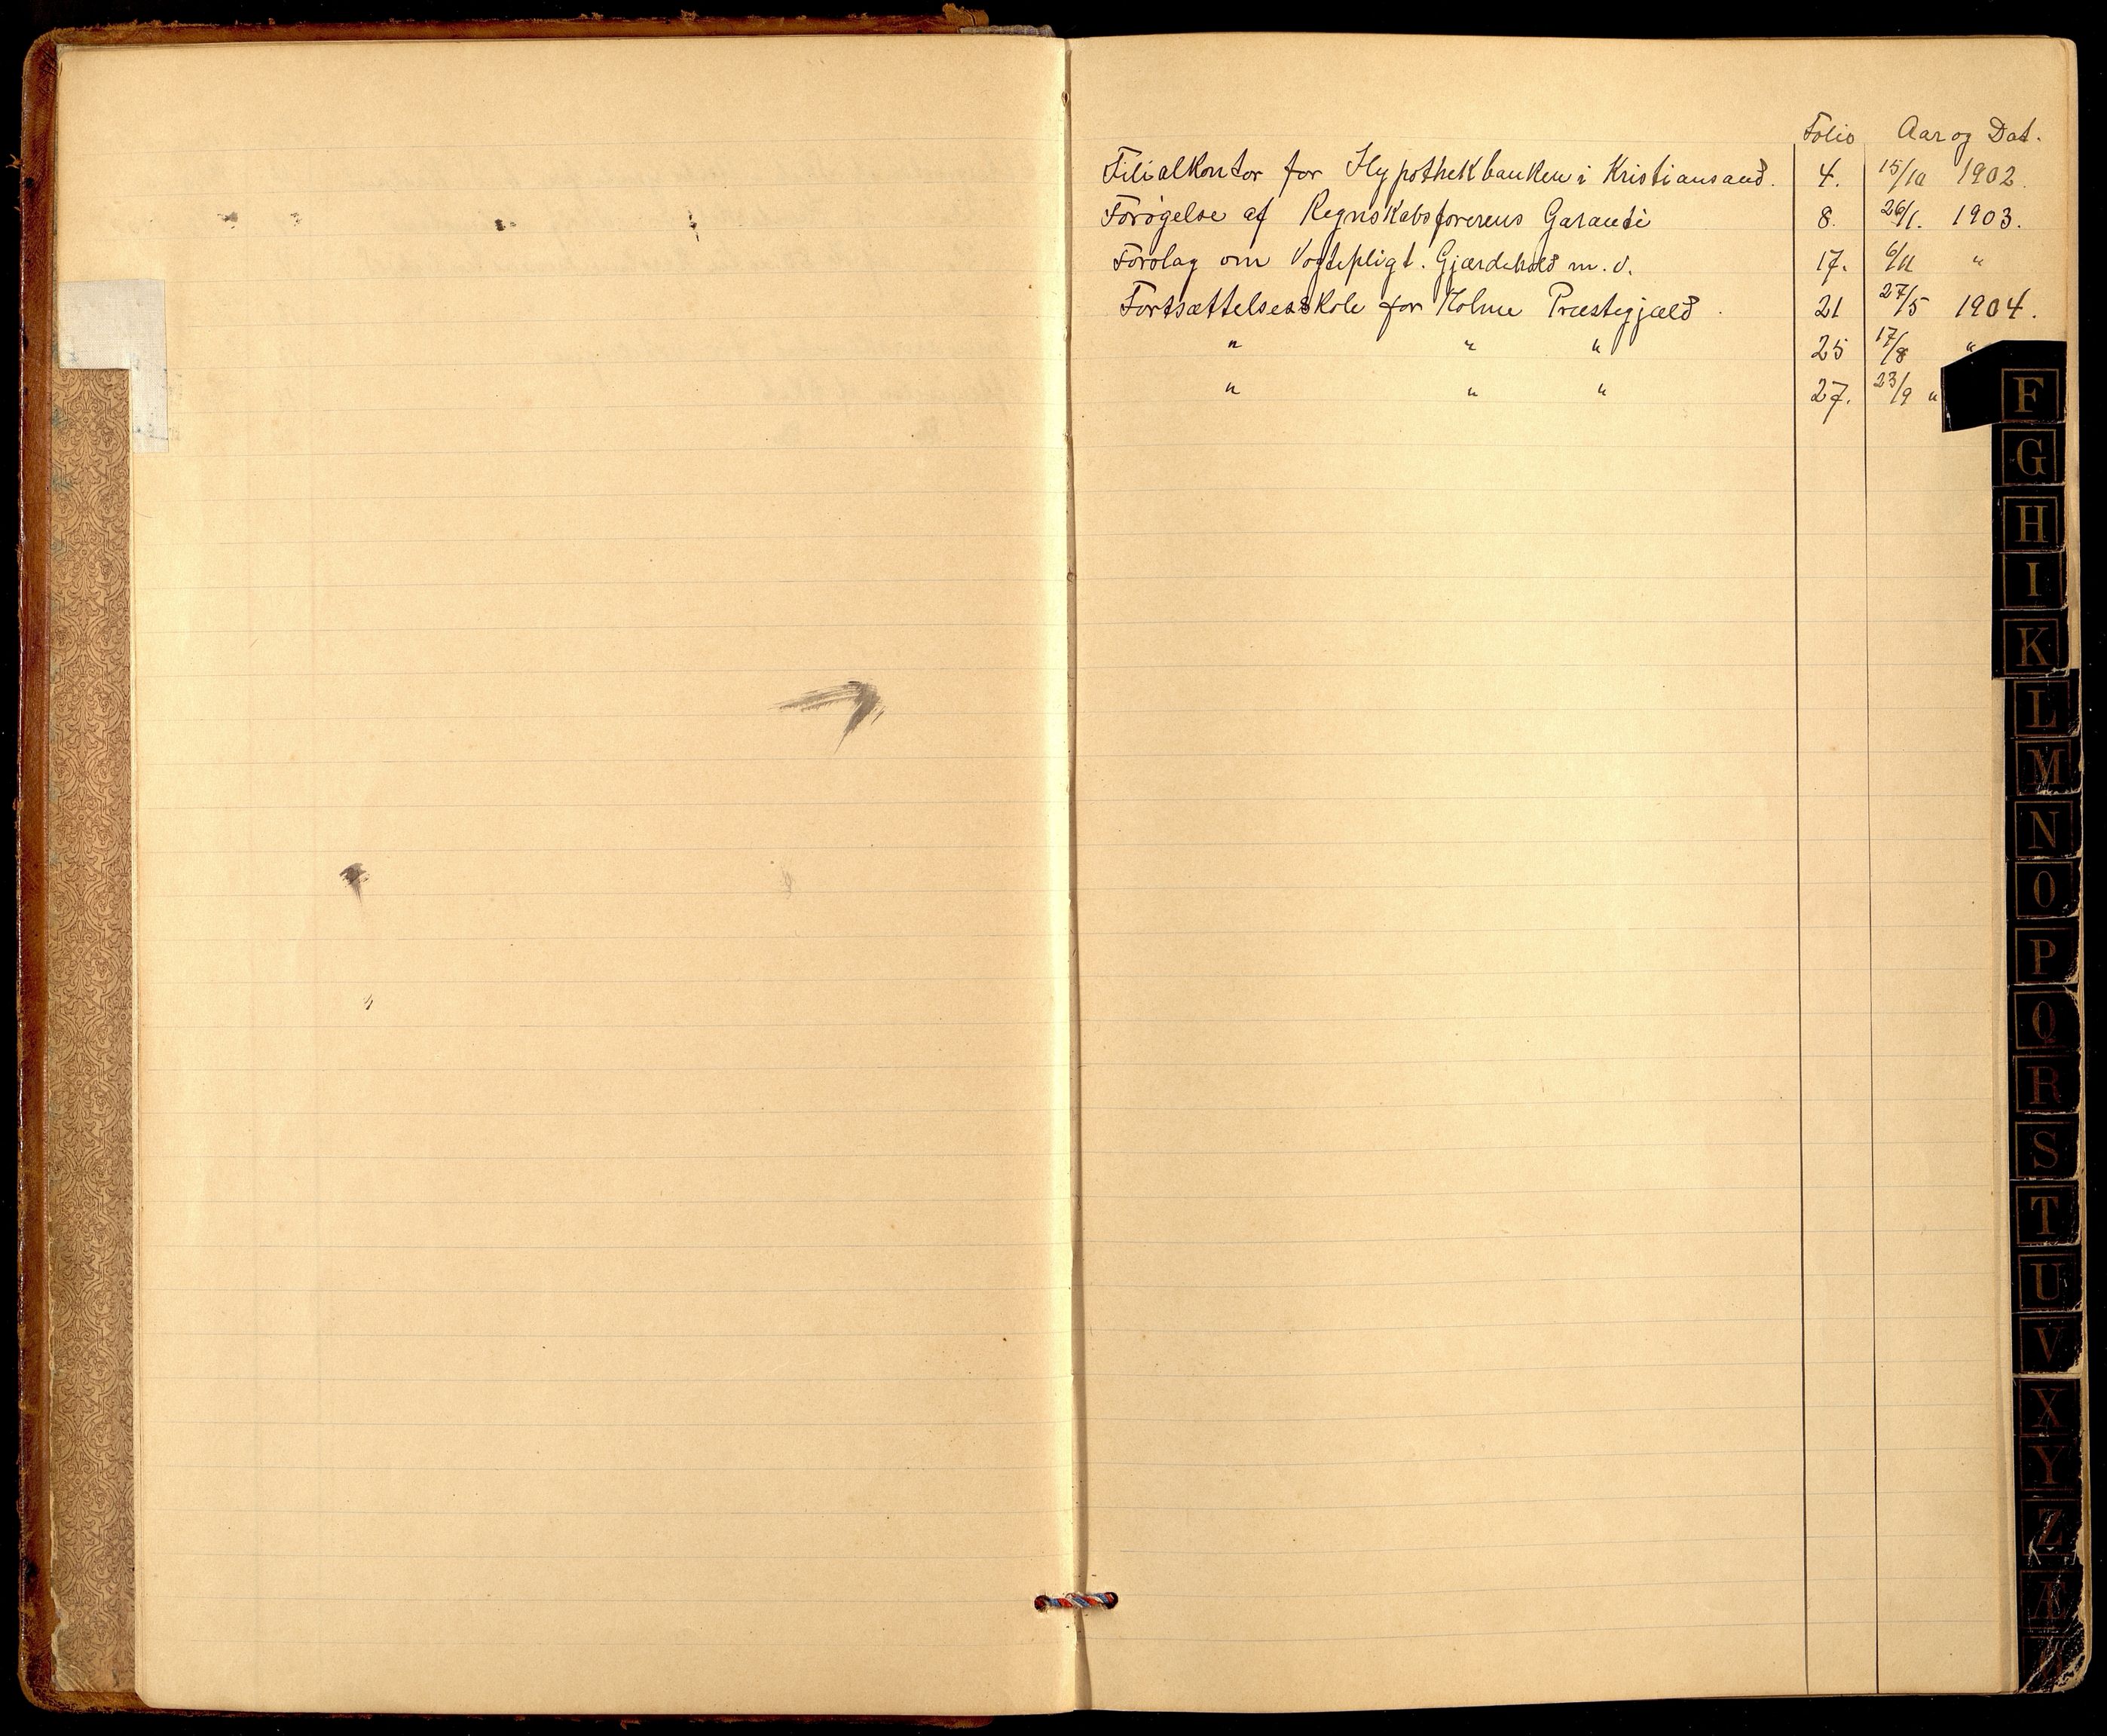 Folio Aar og Dat.
Filialkontor for Hypothekbanken i Kristiansand. 4. 15/10 1902.
Forøgelse af Regnskabsførerens Garanti 8. 26/1. 1903.
Forslag om Vogtepligt. Gjærdehold m. v. 17. 6/11 "
Fortsættelsesskole for Holme Præstegjæld. 21 27/5 1904.
" " " 25 17/8 "
" " " 27. 23/9 "
F
G
H
I
K
L
M
N
O
P
Q
R
S
T
U
V
X
Y
Z
Æ
Ø